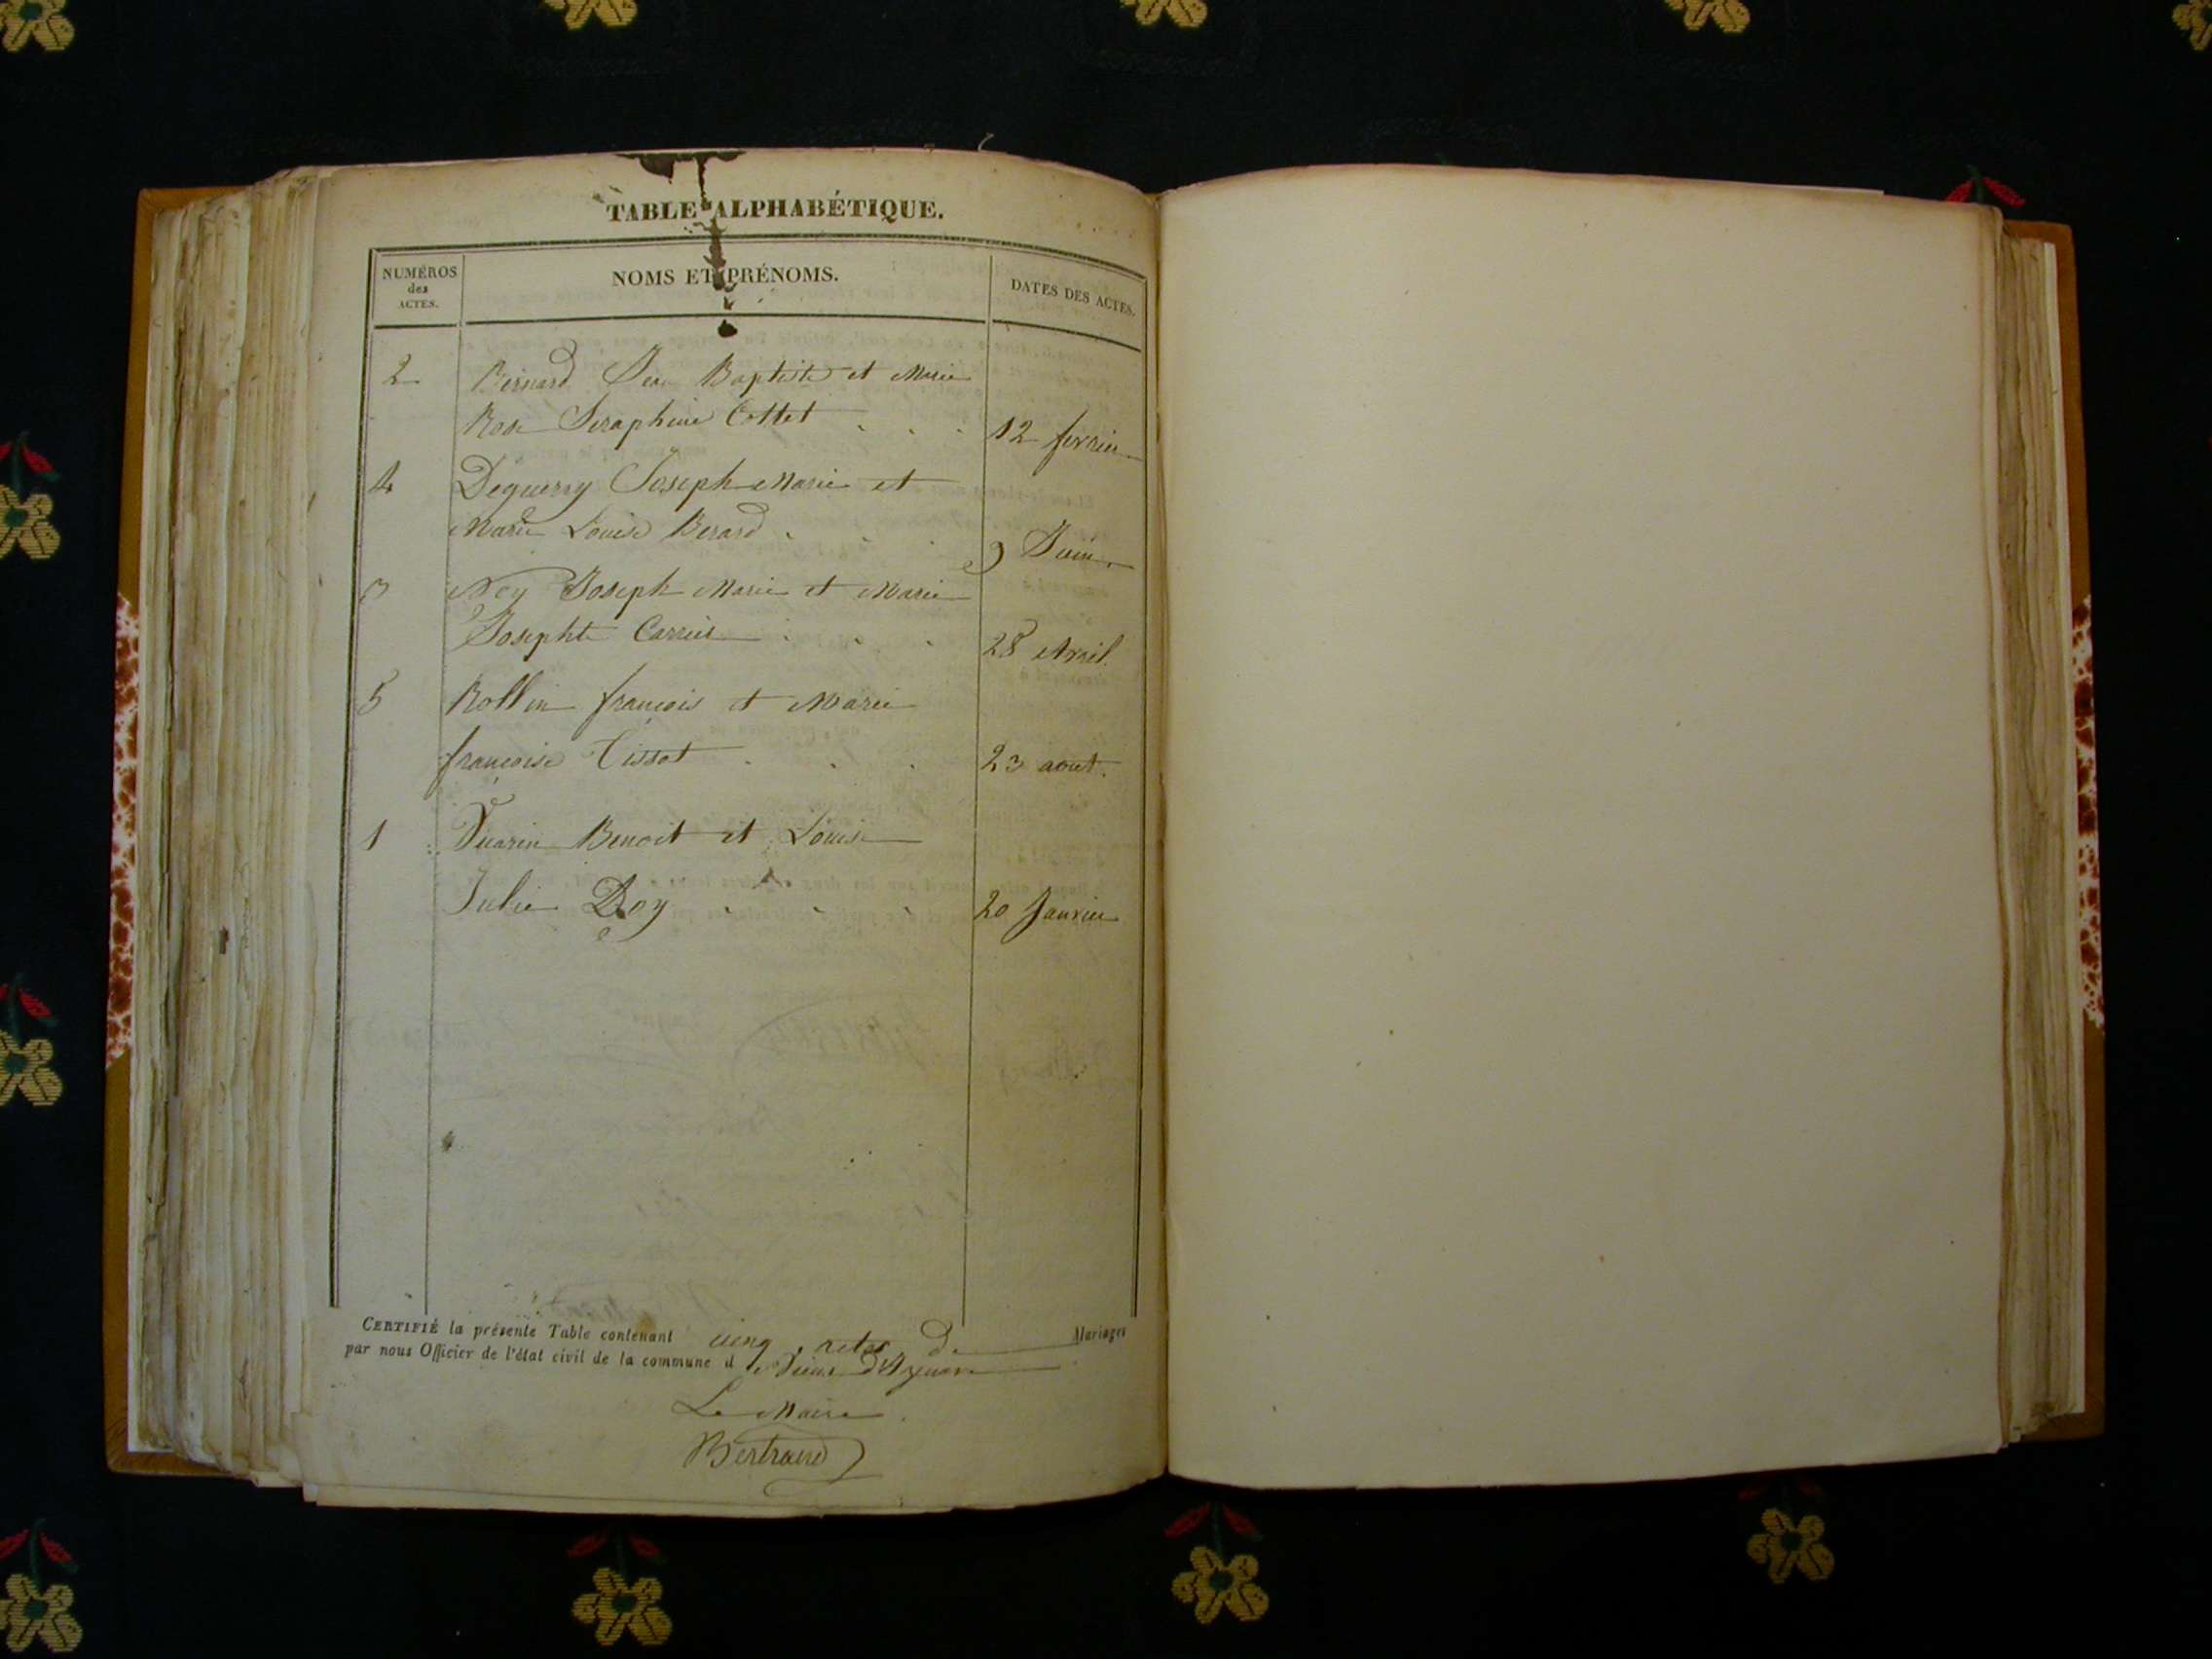 TABLE ALPHABÉTIQUE.
NUMÉROS des ACTES. NOMS ET PRÉNOMS. DATES DES ACTES.
2 Bernard Jean Baptiste et Marie
Rose Seraphine Cottet . . . 12 fevrier
4 Deguerry Joseph Marie et
Marie Louise Berard . . . 9 Juin.
3 Ney Joseph Marie et Marie
Josephte Carrier . . . 28 Avril.
5 Rollin francois et Marie
francoise Tissot . . . 23 aout.
1 Vuarin Benoit et Louise
Julie Roy . . . 20 Janvier
CERTIFIÉ la présente Table contenant cinq actes de Mariages
par nous Officier de l'état civil de la commune d
Le Maire
Bertrand